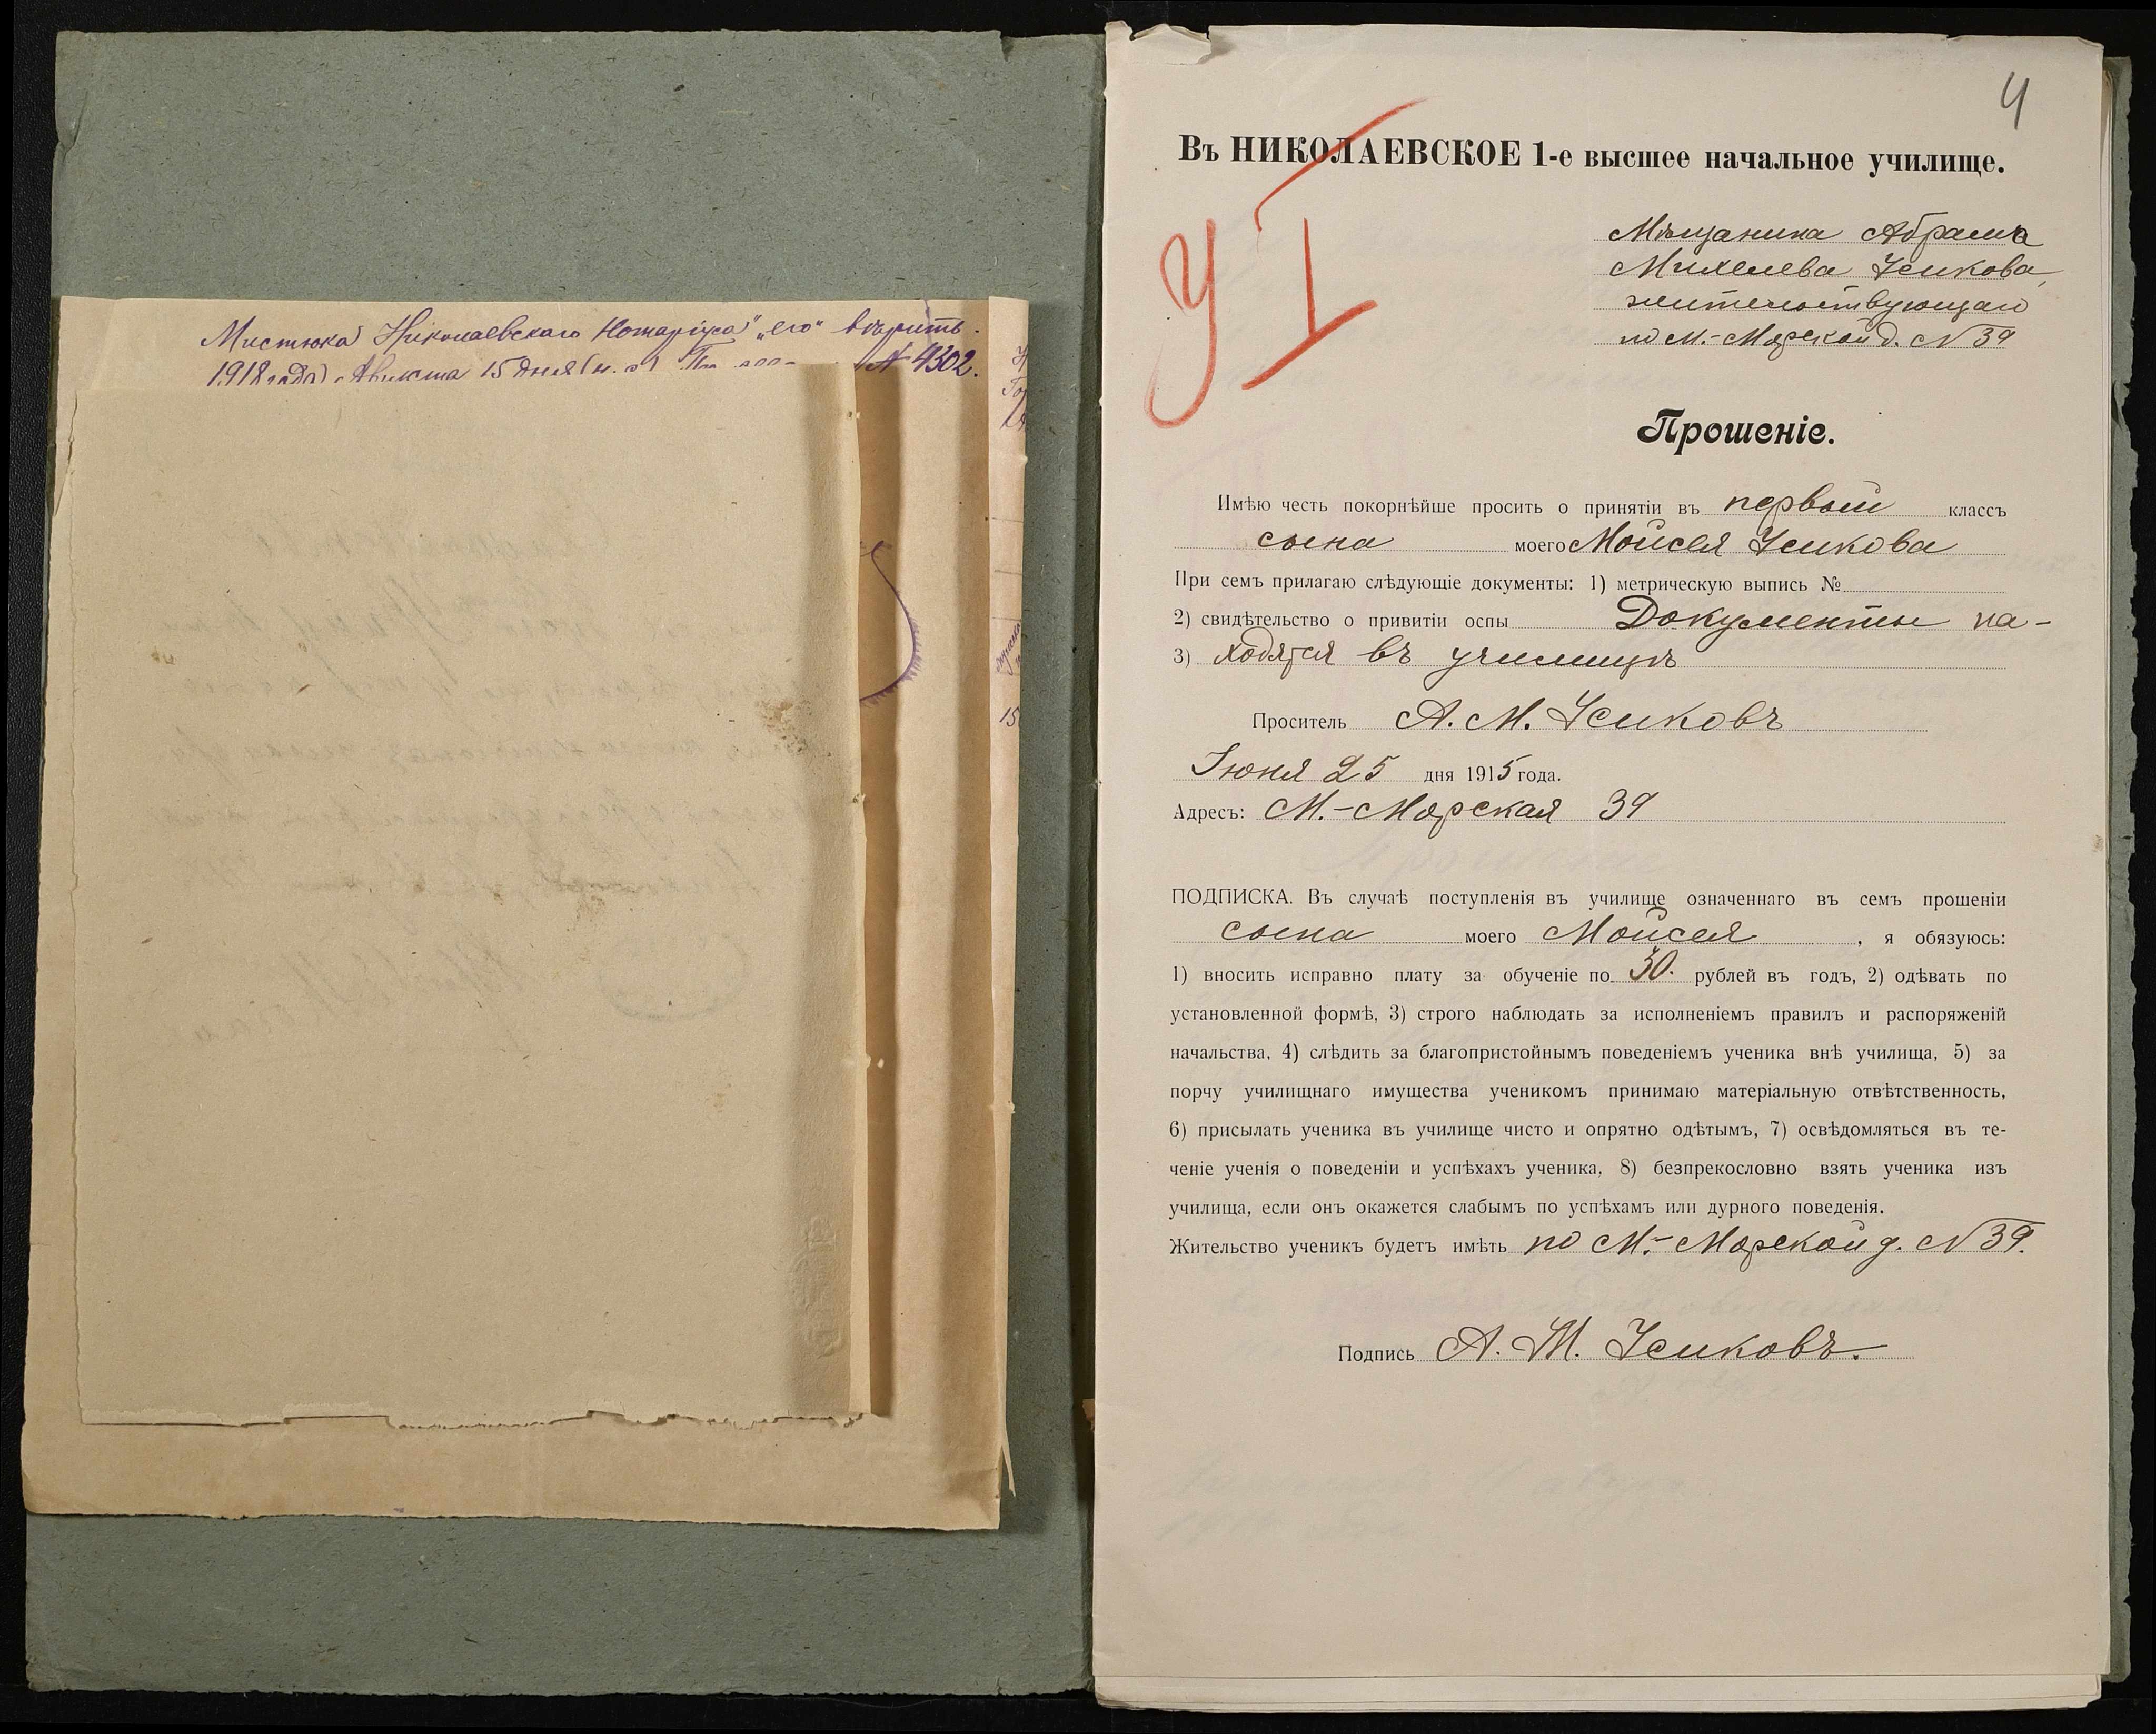 Мистюка) Николаевскаго Нотаріуса" „его" вѣрить.
1918 года) Августа 15 дня (н. с) По № 4302.
15
4
Въ НИКОЛАЕВСКОЕ 1-е высшее начальное училище.
У I
Мѣщанина Абрама
Михелева Усикова,
жительствующаго
по М.-Морской д. № 39
Прошеніе.
Имѣю честь покорнѣйше просить о принятіи въ первый классъ
сына моего Моисея Усикова
При семъ прилагаю слѣдующіе документы: 1) метрическую выпись №
2) свидѣтельство о привитіи оспы Документы на-
3) ходятся въ училищѣ
Проситель А. М. Усиковъ
Іюня 25 дня 1915 года.
Адресъ: М.-Морская 39
ПОДПИСКА. Въ случаѣ поступленія въ училище означеннаго въ семъ прошеніи
сына моего Моисея, я обязуюсь:
1) вносить исправно плату за обученіе по 30. рублей въ годъ, 2) одѣвать по
установленной формѣ, 3) строго наблюдать за исполненіемъ правилъ и распоряженій
начальства, 4) слѣдить за благопристойнымъ поведеніемъ ученика внѣ училища, 5) за
порчу училищнаго имущества ученикомъ принимаю матеріальную отвѣтственность,
6) присылать ученика въ училище чисто и опрятно одѣтымъ, 7) освѣдомляться въ те-
ченіе ученія о поведеніи и успѣхахъ ученика, 8) безпрекословно взять ученика изъ
училища, если онъ окажется слабымъ по успѣхамъ или дурного поведенія.
Жительство ученикъ будетъ имѣть по М.-Морской д. № 39.
Подпись А. М. Усиковъ.